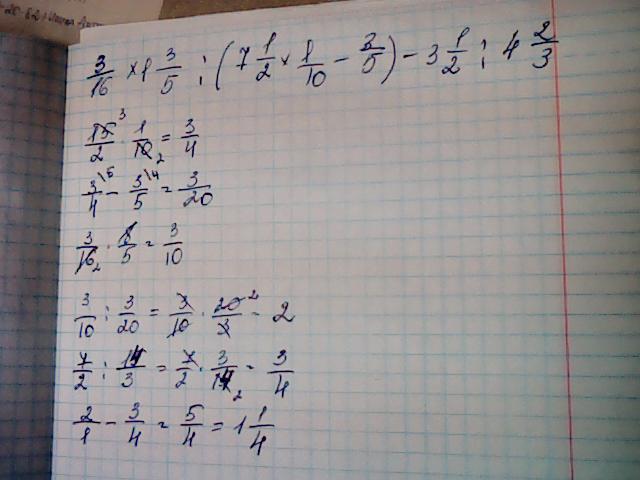 3/16 × 1 3/5 : (7 1/2 × 1/10 - 3/5) - 3 1/2 : 4 2/3
15/2 · 1/10 = 3/4
3/4 - 3/5 = 3/20
3/16 · 8/5 = 3/10
3/10 : 3/20 = 3/10 · 20/3 = 2
7/2 : 14/3 = 7/2 · 3/14 = 3/4
2/1 - 3/4 = 5/4 = 1 1/4